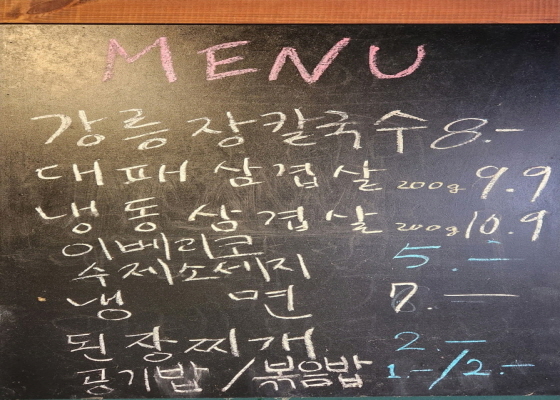 MENU
강릉장칼국수 8.-
대패삼겹살 200g 9.9
냉동삼겹살 200g 10.9
이베리코
수제소세지 5.-
냉면 7.-
된장찌개 2.-
공기밥/볶음밥 1.-/2.-